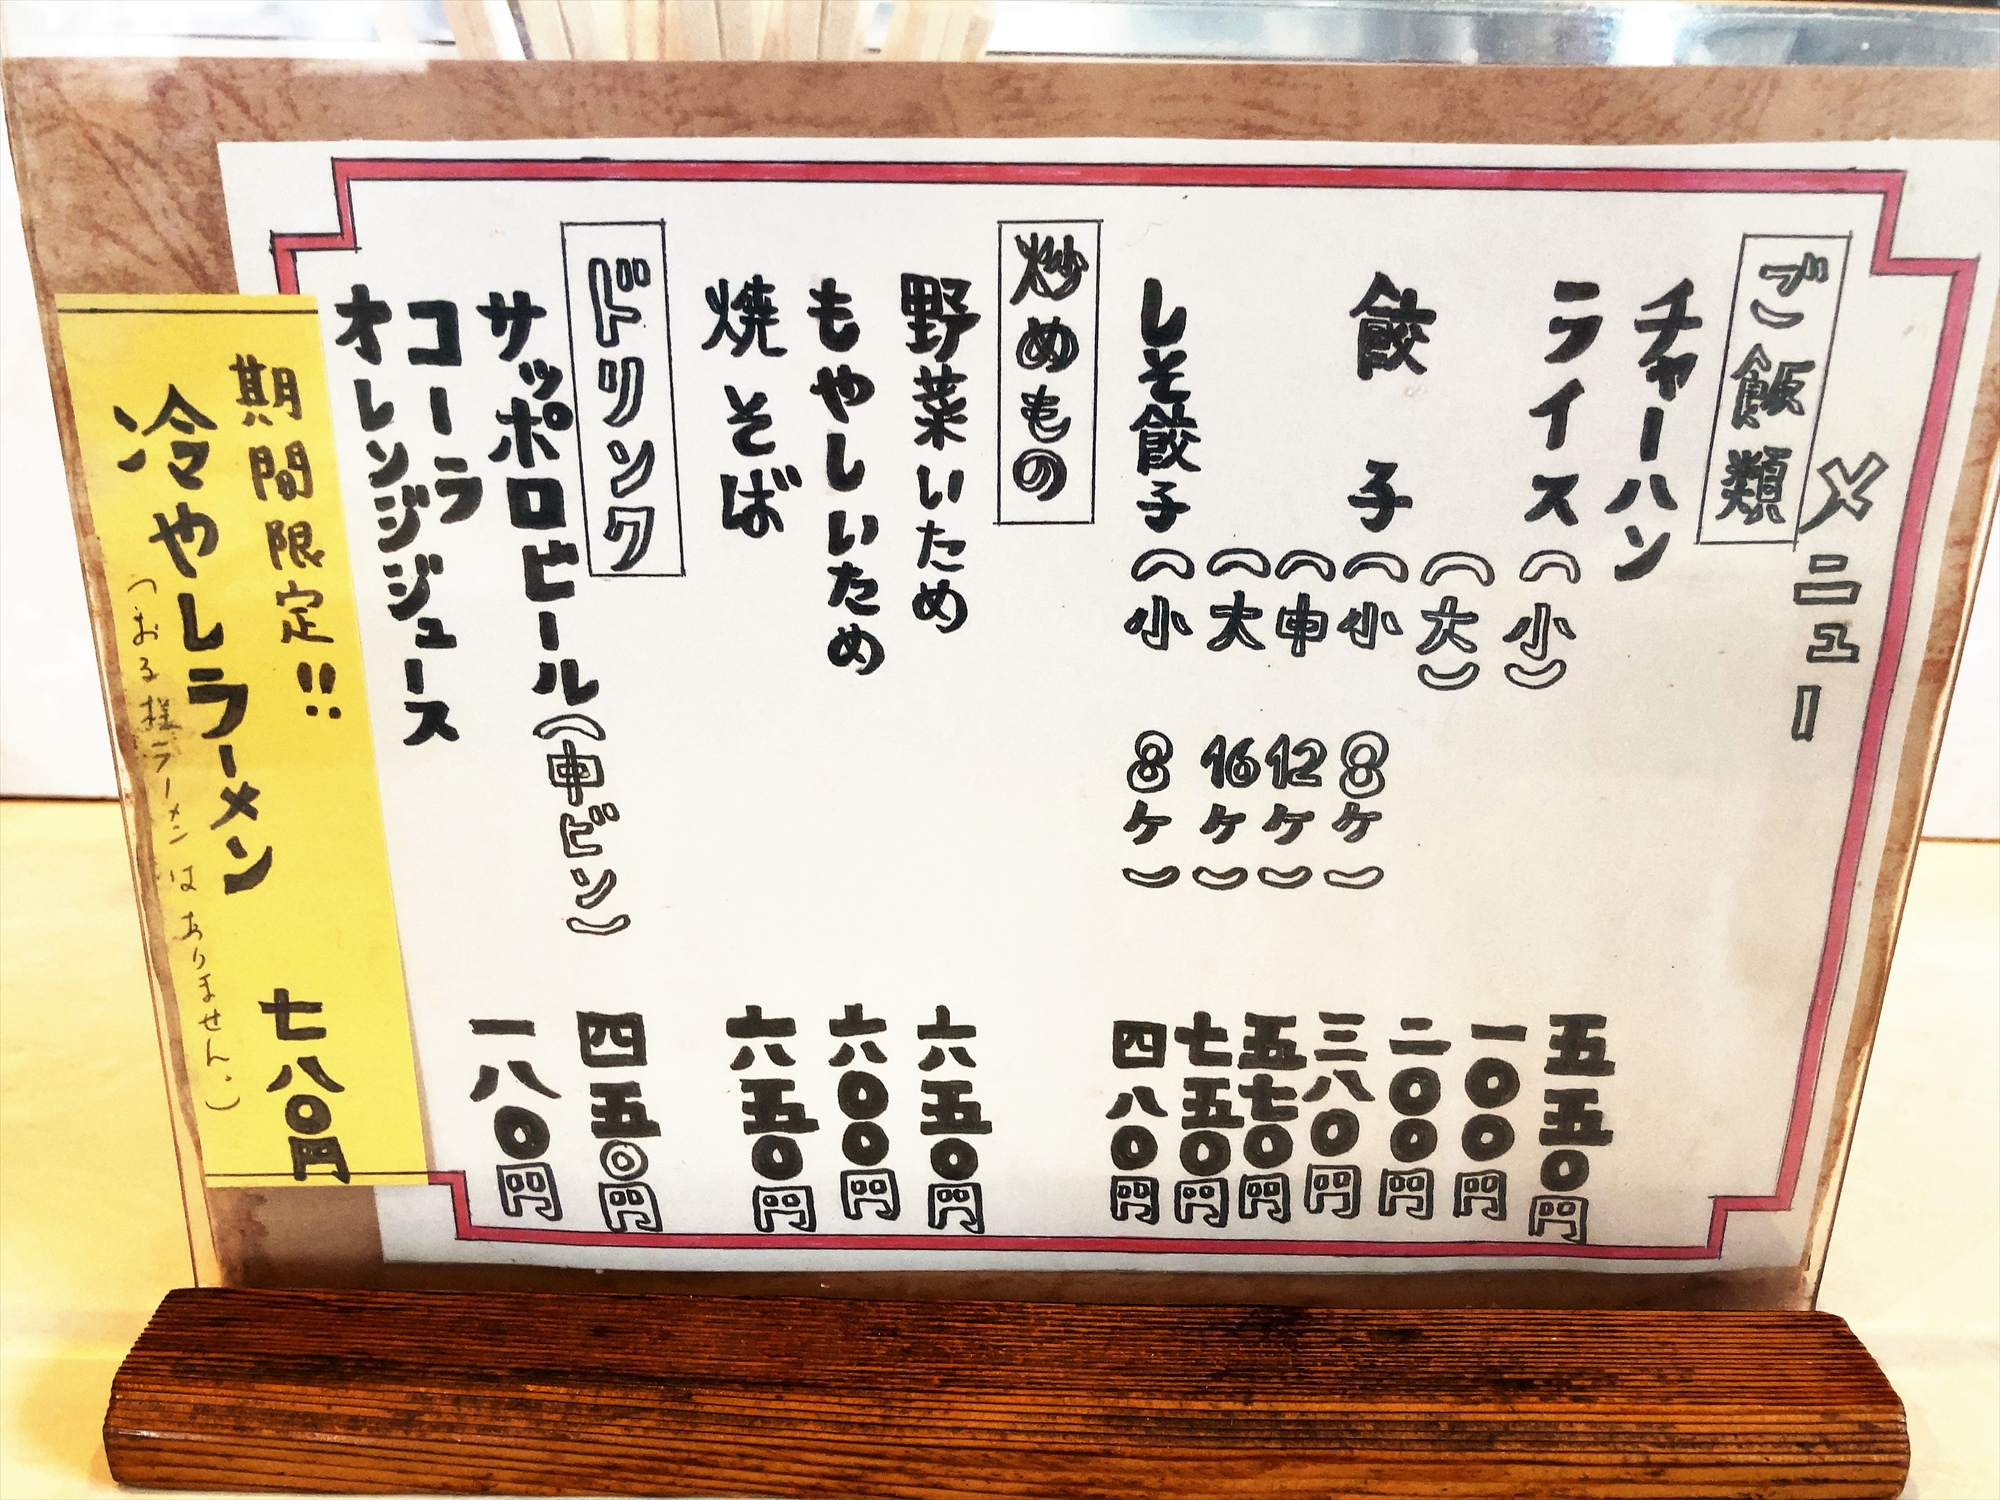 メニュー
ご飯類
チャーハン 五五〇円
ライス(小) 一〇〇円
(大) 二〇〇円
餃子(小 8ケ) 三八〇円
(中 12ケ) 五七〇円
(大 16ケ) 七五〇円
しそ餃子(小 8ケ) 四八〇円
炒めもの
野菜いため 六五〇円
もやしいため 六〇〇円
焼そば 六五〇円
ドリンク
サッポロビール(中ビン) 四五〇円
コーラ
オレンジジュース 一八〇円
期間限定!!
冷やしラーメン 七八〇円
(おろ様ラーメンはありません。)